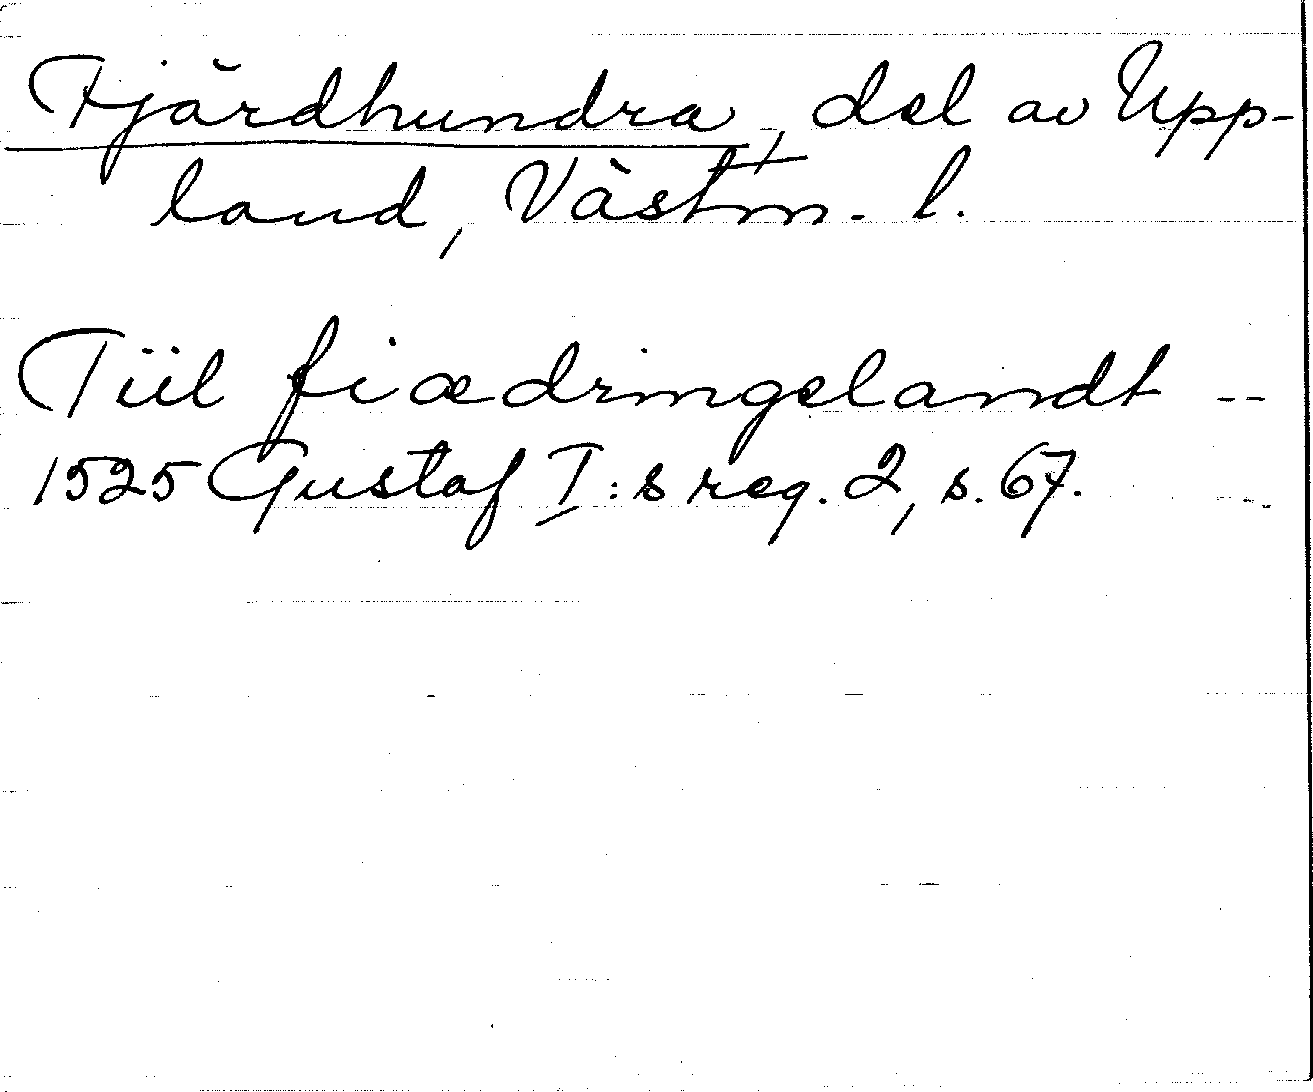 Fjärdhundra, del av Upp-
land, Västm. l.
Tiil fiædringelandt --
1525 Gustaf I:s reg. 2, s. 67.